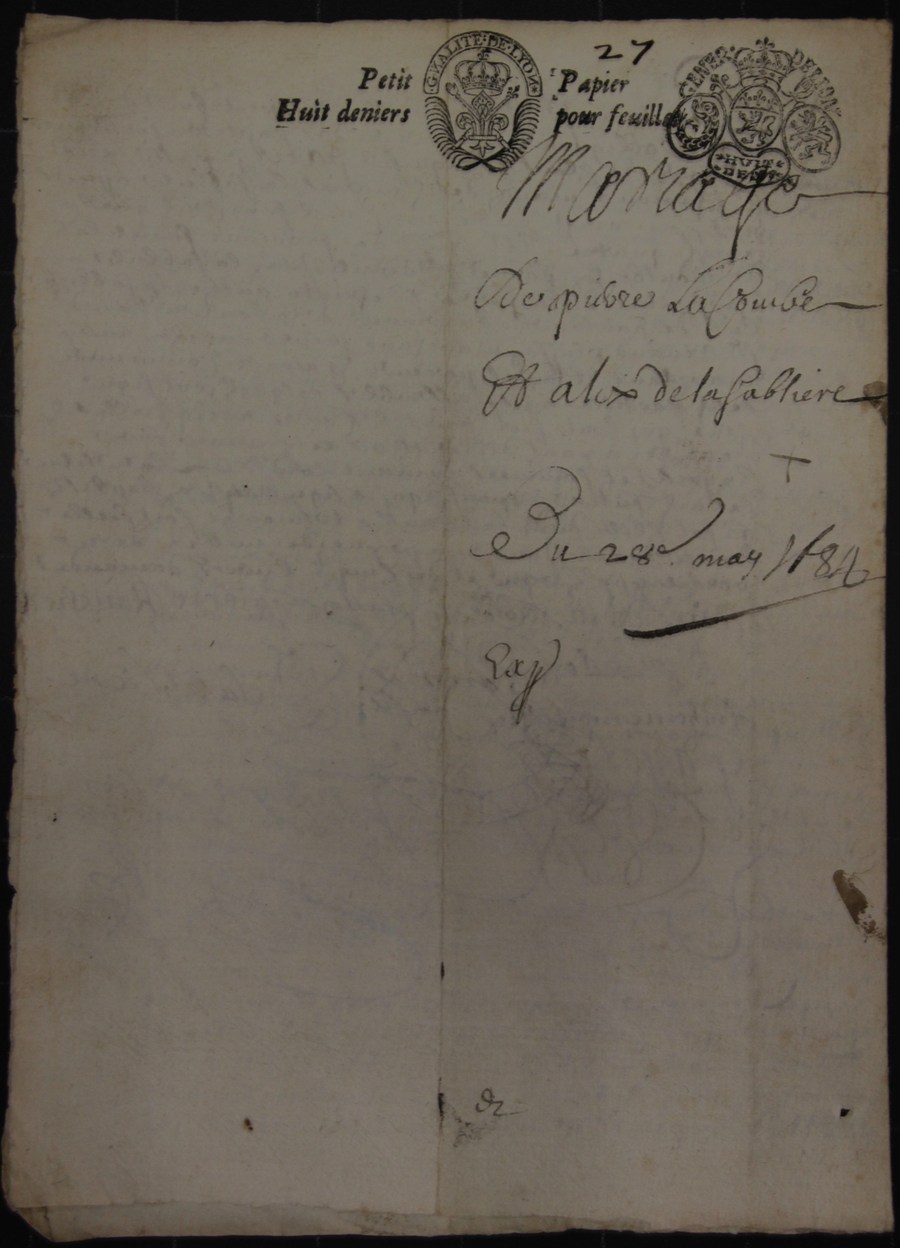 27
Petit Papier
Huit deniers pour feuille
GNALITE·DE·LYON
HUIT
DEN
Mariage
De pierre La Combe
Et alix de la Sabliere
Du 28e. may 1684
Exp